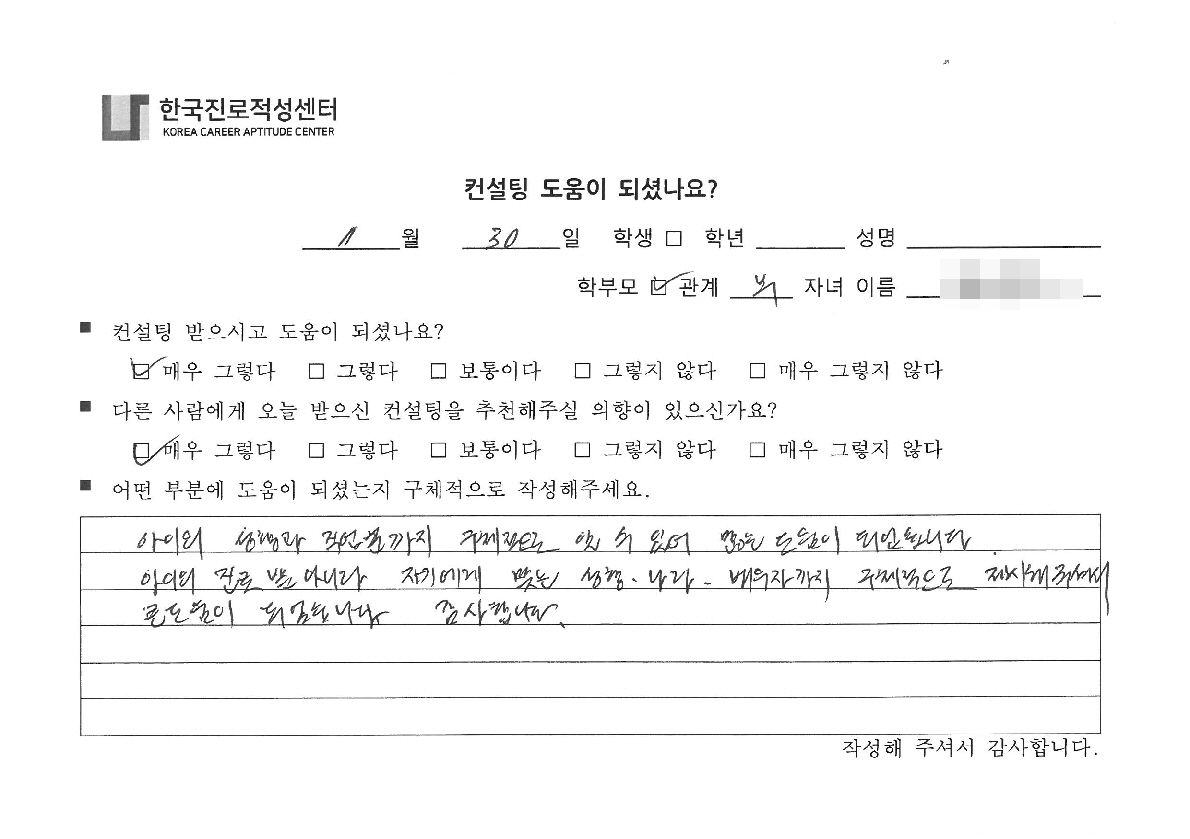 한국진로적성센터
KOREA CAREER APTITUDE CENTER
컨설팅 도움이 되셨나요?
11 월 30 일 학생 □ 학년 성명
학부모 ☑ 관계 부 자녀 이름
■ 컨설팅 받으시고 도움이 되셨나요?
☑ 매우 그렇다 □ 그렇다 □ 보통이다 □ 그렇지 않다 □ 매우 그렇지 않다
■ 다른 사람에게 오늘 받으신 컨설팅을 추천해주실 의향이 있으신가요?
☑ 매우 그렇다 □ 그렇다 □ 보통이다 □ 그렇지 않다 □ 매우 그렇지 않다
■ 어떤 부분에 도움이 되셨는지 구체적으로 작성해주세요.
아이의 성향과 직업분까지 구체적으로 알 수 있어 많은 도움이 되었습니다.
아이의 진로 뿐 아니라 자기에게 맞는 성향. 나라. 배우자까지 구체적으로 제시해주셔서
큰 도움이 되었습니다. 감사합니다.
작성해 주셔서 감사합니다.